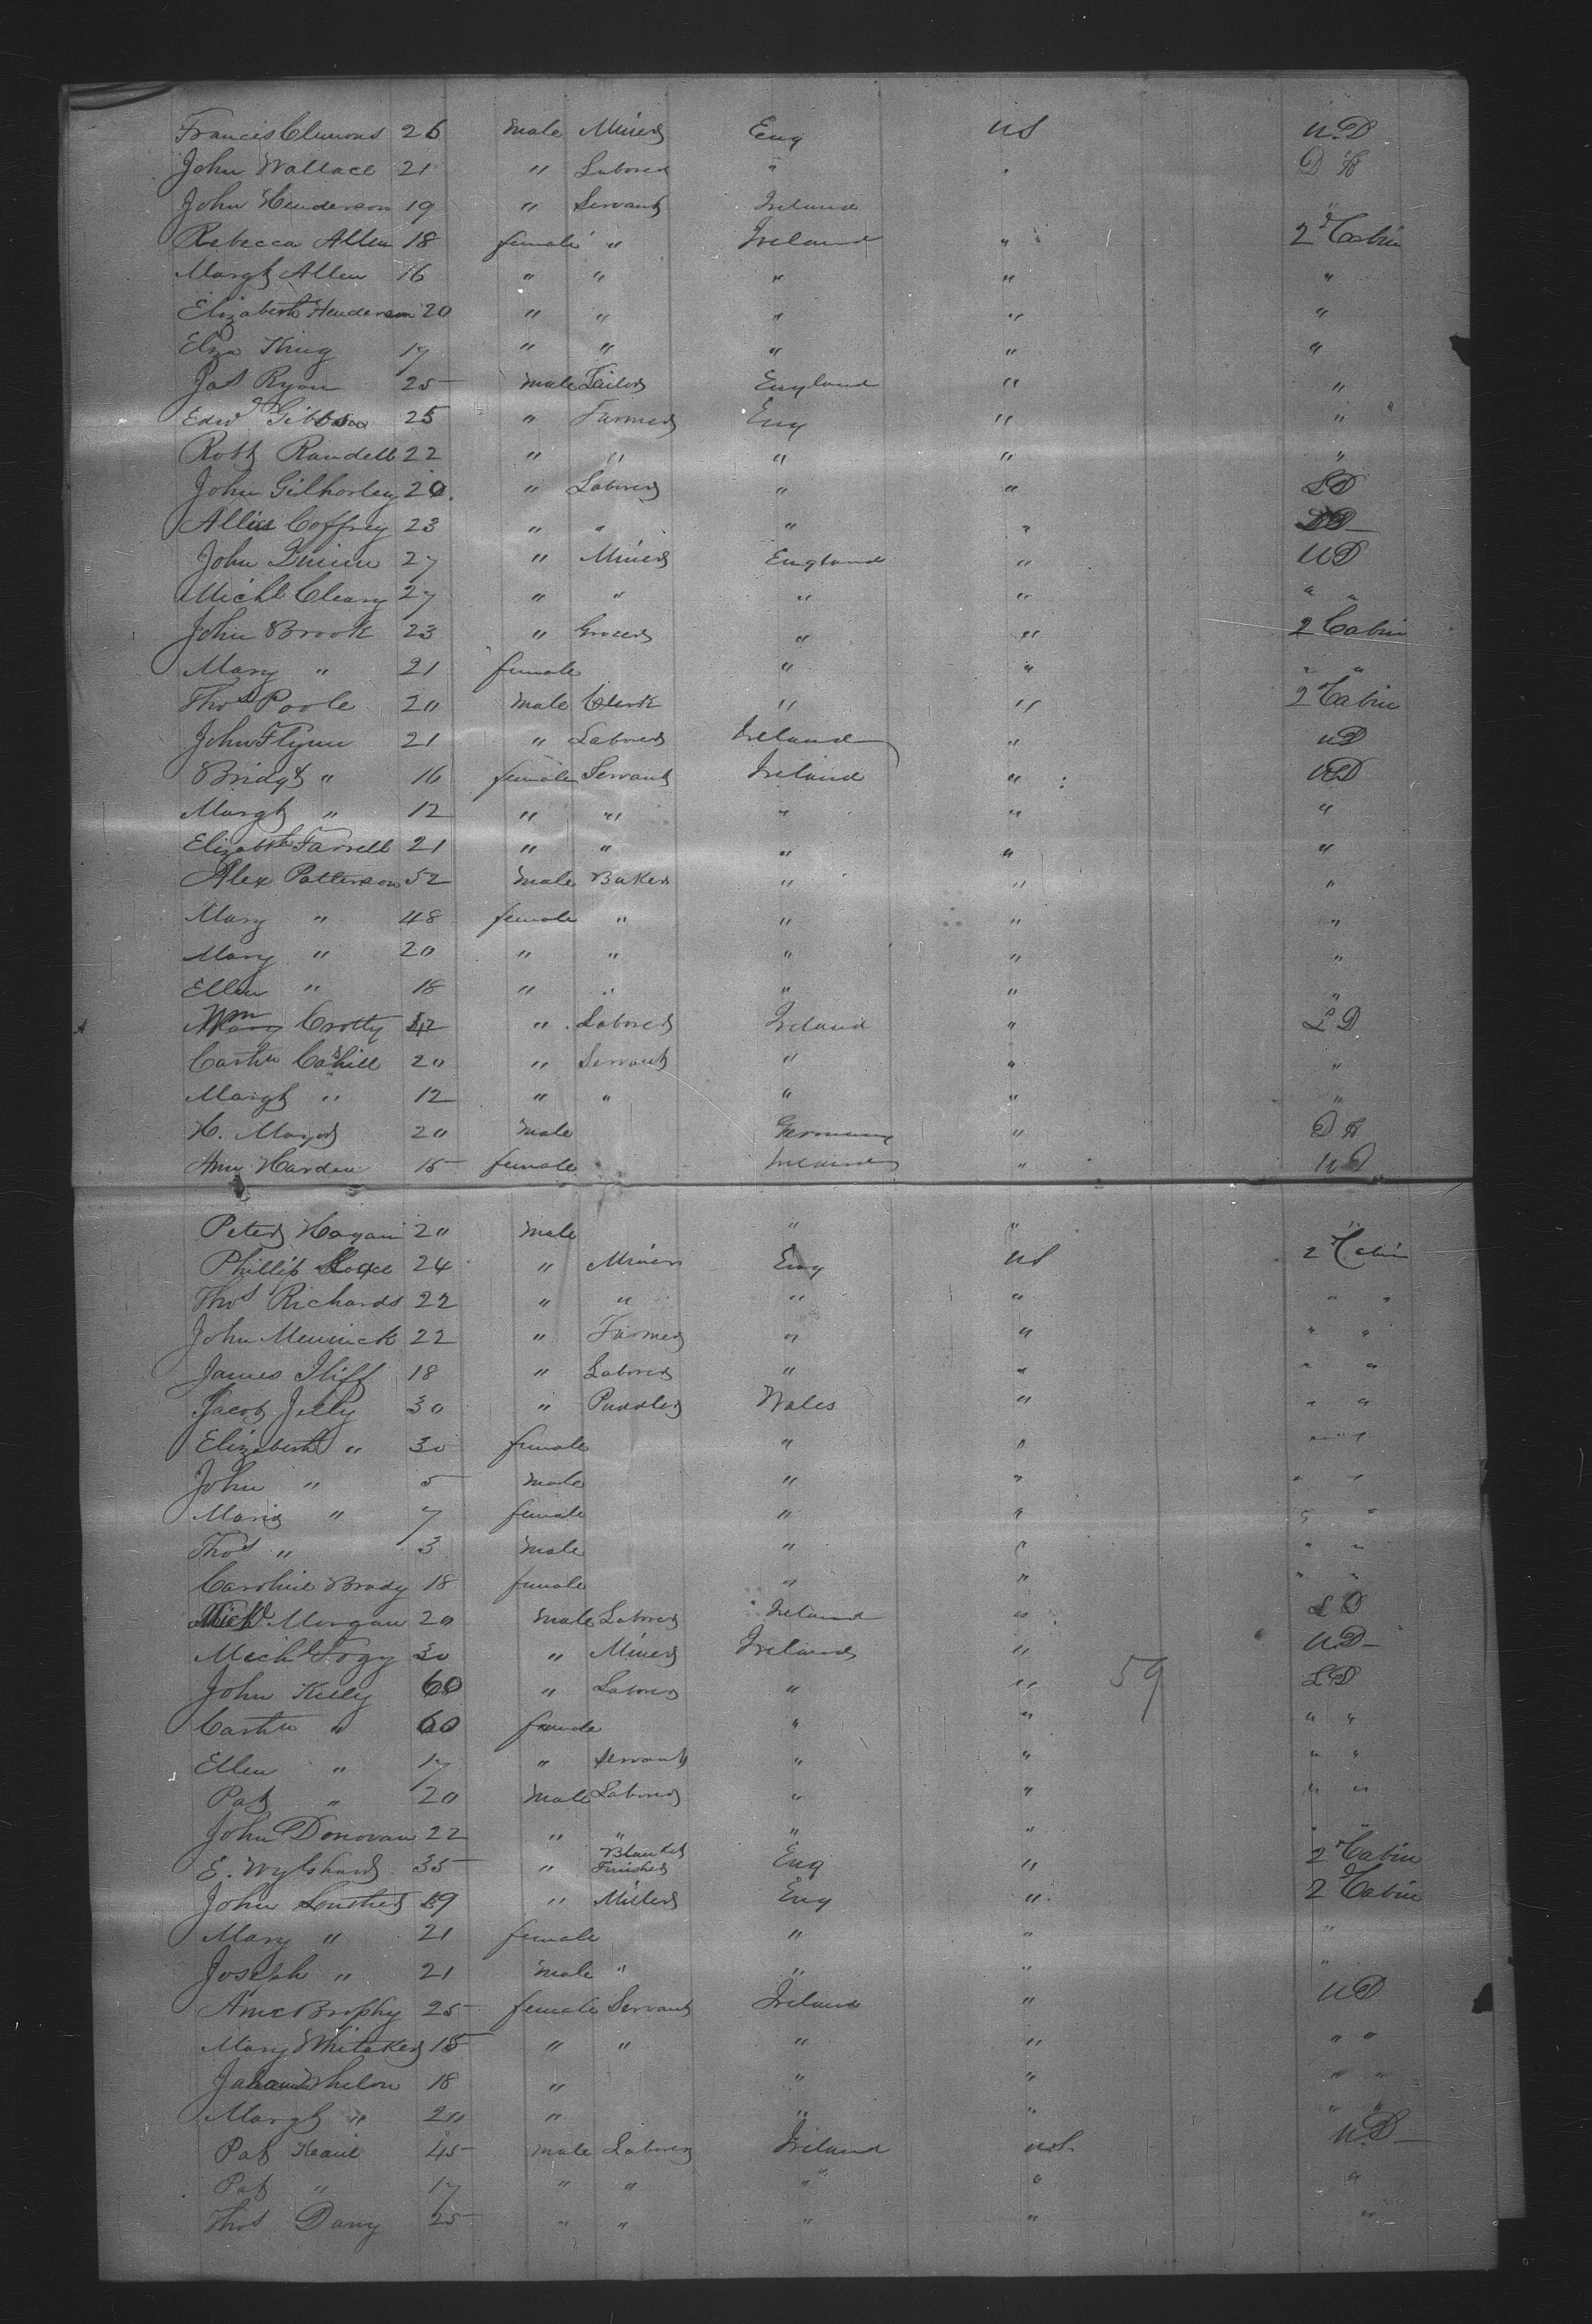 Francis Clemons 26 male Miner Eng US U.D
John Wallace 21 " Laborer " " D H
John Henderson 19 " Servant Ireland "
Rebecca Allen 18 female " Ireland " 2d Cabin
Margt Allen 16 " " " " "
Elizabeth Henderson 20 " " " " "
Eliza King 19 " " " " "
Jas Ryan 25 male Tailor England " "
Edwd Gibbson 25 " Farmer Eng " "
Robt Randell 22 " " " " "
John Gilhorley 20. " Laborer " " LD
Allice Coffrey 23 " " " "
John 27 " Miner England " UD
Michl Cleary 27 " " " " " "
John Brook 23 " Grocer " " 2 Cabin
Mary " 21 female " " " "
Thos Poole 20 male Clerk " " 2d Cabin
John Flynn 21 " Laborer Ireland " UD
Bridgt " 16 female Servant Ireland " UD
Margt " 12 " " " " "
Elizabth Farrell 21 " " " " "
Alex Patterson 52 male Baker " " "
Mary " 48 female " " " "
Mary " 20 " " " " "
Ellen " 18 " " " " "
Wm Crotty 42 " Laborer Ireland " L D
Cathn Cahill 20 " Servant " " "
Margt " 12 " " " " "
H. Mayer 20 male Germany " D H
Ann Harden 15 female Ireland " U D
Peter Hagan 20 male " " "
Phillip 24 " Miner Eng US 2d Cabin
Thos Richards 22 " " " " " "
John Mennick 22 " Farmer " " " "
James Iliff 18 " Laborer " " " "
Jacob Jelly 30 " Puddler Wales " " "
Elizabeth " 30 female " " " "
John " 5 male " " " "
Maria " 7 female " " " "
Thos " 3 male " " " "
Caroline Brady 18 female " " " "
Michl Morgan 20 male Laborer Ireland " L D
Michl Fogy 30 " Miner Ireland " U.D
John Kelly 60 " Laborer " " 59 LD
Cathn " 60 female " " " "
Ellen " 17 " Servant " " " "
Pat " 20 male Laborer " " " "
John Donovan 22 " " " " " "
E. Wylshard 35 " Blanket Finisher Eng " 2d Cabin
John Louther 19 " Miller Eng " 2d Cabin
Mary " 21 female " " "
Joseph " 21 male " " " "
Anne Brophy 25 female Servant Ireland " UD
Mary Whitaker 18 " " " " " "
Johannah Whelon 18 " " " " "
Margt " 20 " " " " "
Pat Keane 45 male Laborer Ireland US U.D
Pat " 17 " " " " "
Thos Dany 25 " " " " "